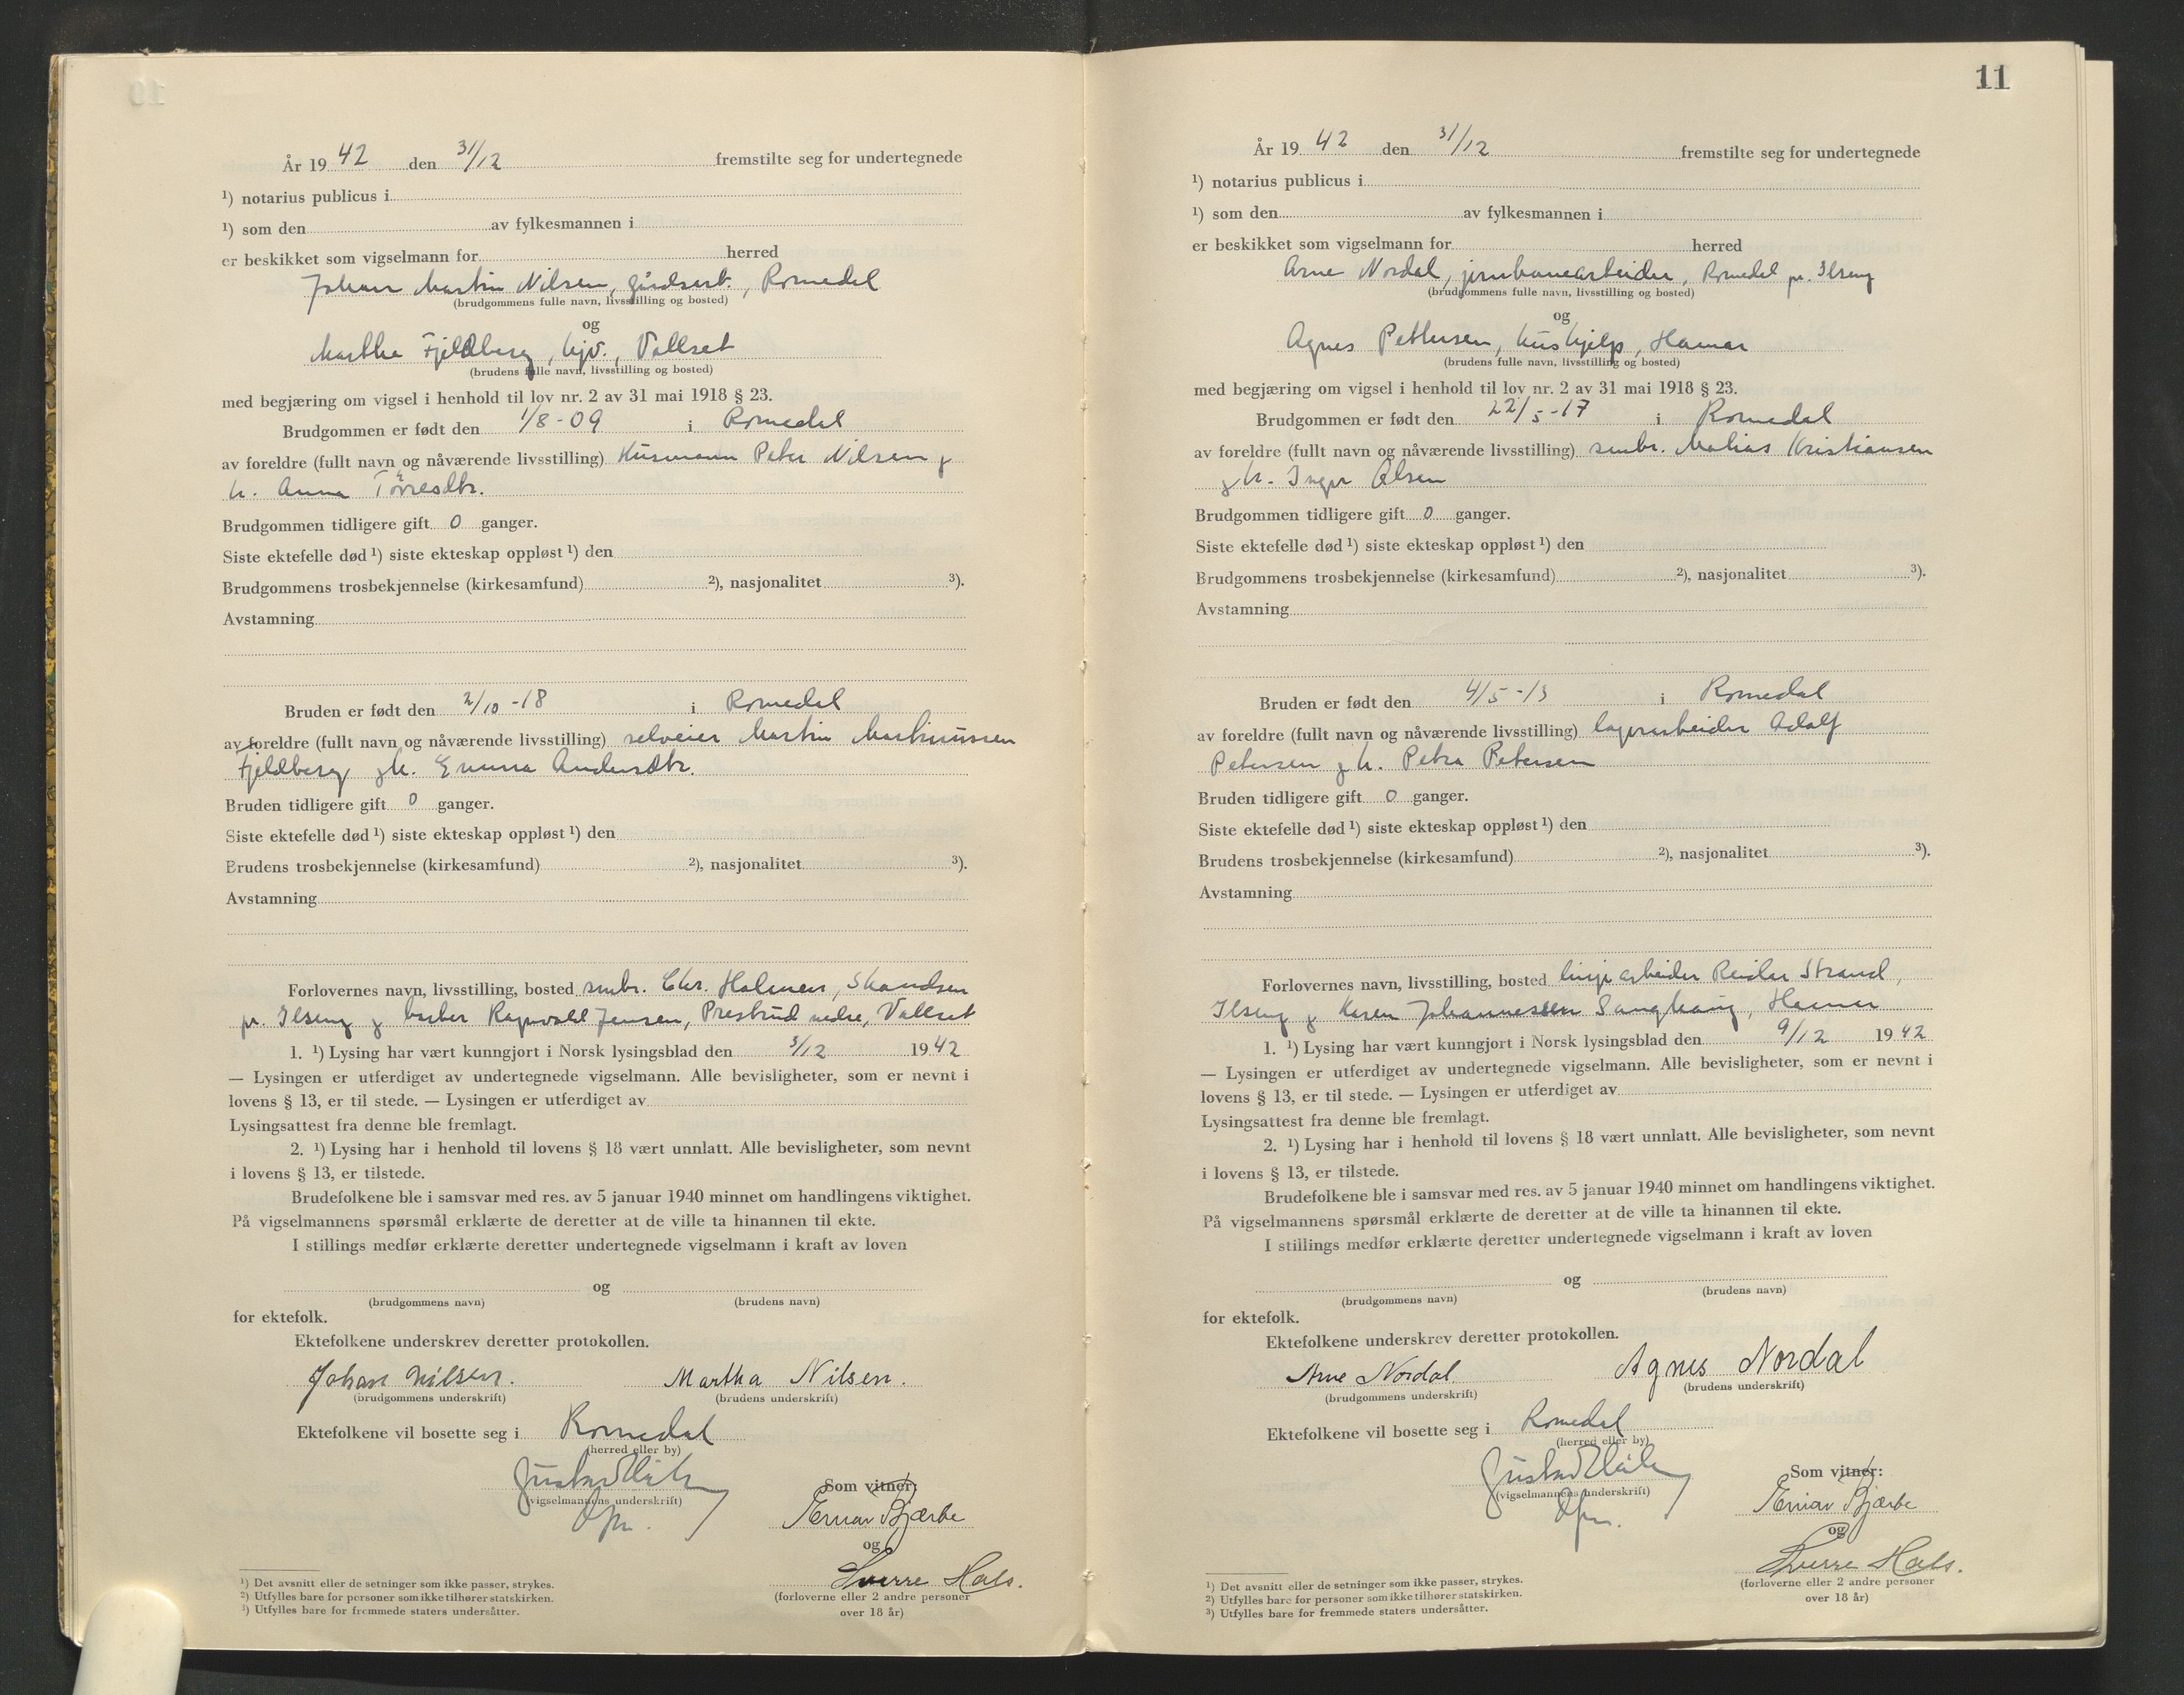 År 19 42 den 31/12 fremstilte seg for undertegnede
¹) notarius publicus i
¹) som den av fylkesmannen i
er beskikket som vigselmann for herred
Johan Martin Nilsen, gårdsarb., Romedal
(brudgommens fulle navn, livsstilling og bosted)
og
Martha Fjeldberg, hjv., Vallset
(brudens fulle navn, livsstilling og bosted)
med begjæring om vigsel i henhold til lov nr. 2 av 31 mai 1918 § 23.
Brudgommen er født den 1/8-09 i Romedal
av foreldre (fullt navn og nåværende livsstilling) Husmann Peter Nilsen og
h. Anna Torresdtr.
Brudgommen tidligere gift 0 ganger.
Siste ektefelle død ¹) siste ekteskap oppløst ¹) den
Brudgommens trosbekjennelse (kirkesamfund) ²), nasjonalitet ³).
Avstamning
Bruden er født den 2/10-18 i Romedal
av foreldre (fullt navn og nåværende livsstilling) selveier Martin Martinussen
Fjeldberg og h. Emma Andersdtr.
Bruden tidligere gift 0 ganger.
Siste ektefelle død ¹) siste ekteskap oppløst ¹) den
Brudens trosbekjennelse (kirkesamfund) ²), nasjonalitet ³).
Avstamning
Forlovernes navn, livsstilling, bosted smbr. Chr. Holmen, Skandsen
pr. Ilseng og Ragnvald Jensen, Prestrud nedre, Vallset
1. ¹) Lysing har vært kunngjort i Norsk lysingsblad den 3/12 1942
— Lysingen er utferdiget av undertegnede vigselmann. Alle bevisligheter, som er nevnt i
lovens § 13, er til stede. — Lysingen er utferdiget av
Lysingsattest fra denne ble fremlagt.
2. ¹) Lysing har i henhold til lovens § 18 vært unnlatt. Alle bevisligheter, som nevnt
i lovens § 13, er tilstede.
Brudefolkene ble i samsvar med res. av 5 januar 1940 minnet om handlingens viktighet.
På vigselmannens spørsmål erklærte de deretter at de ville ta hinannen til ekte.
I stillings medfør erklærte deretter undertegnede vigselmann i kraft av loven
og
(brudgommens navn) (brudens navn)
for ektefolk.
Ektefolkene underskrev deretter protokollen.
Johan Nilsen. Martha Nilsen.
(brudgommens underskrift) (brudens underskrift)
Ektefolkene vil bosette seg i Romedal
(herred eller by)
(vigselmannens underskrift)
Som vitner:
Einar Bjærke
og
Sverre Hals.
(forloverne eller 2 andre personer
over 18 år)
¹) Det avsnitt eller de setninger som ikke passer, strykes.
²) Utfylles bare for personer som ikke tilhører statskirken.
³) Utfylles bare for fremmede staters undersåtter.
11
År 19 42 den 31/12 fremstilte seg for undertegnede
¹) notarius publicus i
¹) som den av fylkesmannen i
er beskikket som vigselmann for herred
Arne Nordal, jernbanearbeider, Romedal pr. Ilseng
(brudgommens fulle navn, livsstilling og bosted)
og
Agnes Pettersen, hushjelp, Hamar
(brudens fulle navn, livsstilling og bosted)
med begjæring om vigsel i henhold til lov nr. 2 av 31 mai 1918 § 23.
Brudgommen er født den 22/5-17 i Romedal
av foreldre (fullt navn og nåværende livsstilling) smbr. Matias Kristiansen
og h. Inger Olsen
Brudgommen tidligere gift 0 ganger.
Siste ektefelle død ¹) siste ekteskap oppløst ¹) den
Brudgommens trosbekjennelse (kirkesamfund) ²), nasjonalitet ³).
Avstamning
Bruden er født den 4/5-13 i Romedal
av foreldre (fullt navn og nåværende livsstilling) lagerarbeider Adolf
Petersen og h. Petra Petersen
Bruden tidligere gift 0 ganger.
Siste ektefelle død ¹) siste ekteskap oppløst ¹) den
Brudens trosbekjennelse (kirkesamfund) ²), nasjonalitet ³).
Avstamning
Forlovernes navn, livsstilling, bosted linjearbeider Reidar Strand,
Ilseng og Karen Johannessen Sanghaug, Hamar
1. ¹) Lysing har vært kunngjort i Norsk lysingsblad den 9/12 1942
— Lysingen er utferdiget av undertegnede vigselmann. Alle bevisligheter, som er nevnt i
lovens § 13, er til stede. — Lysingen er utferdiget av
Lysingsattest fra denne ble fremlagt.
2. ¹) Lysing har i henhold til lovens § 18 vært unnlatt. Alle bevisligheter, som nevnt
i lovens § 13, er tilstede.
Brudefolkene ble i samsvar med res. av 5 januar 1940 minnet om handlingens viktighet.
På vigselmannens spørsmål erklærte de deretter at de ville ta hinannen til ekte.
I stillings medfør erklærte deretter undertegnede vigselmann i kraft av loven
og
(brudgommens navn) (brudens navn)
for ektefolk.
Ektefolkene underskrev deretter protokollen.
Arne Nordal. Agnes Nordal
(brudgommens underskrift) (brudens underskrift)
Ektefolkene vil bosette seg i Romedal
(herred eller by)
(vigselmannens underskrift)
Som vitner:
Einar Bjærke
og
Sverre Hals.
(forloverne eller 2 andre personer
over 18 år)
¹) Det avsnitt eller de setninger som ikke passer, strykes.
²) Utfylles bare for personer som ikke tilhører statskirken.
³) Utfylles bare for fremmede staters undersåtter.